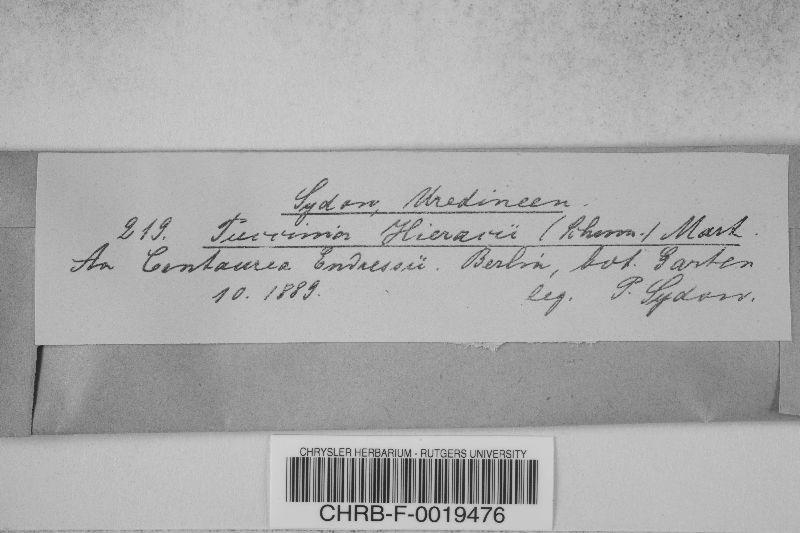 Sydow, Uredineen.
219. Puccinia Hieracii (Schum.) Mart.
An Centaurea Endressii. Berlin, bot. Garten
10. 1889. leg. P. Sydow.
CHRYSLER HERBARIUM - RUTGERS UNIVERSITY
CHRB-F-0019476